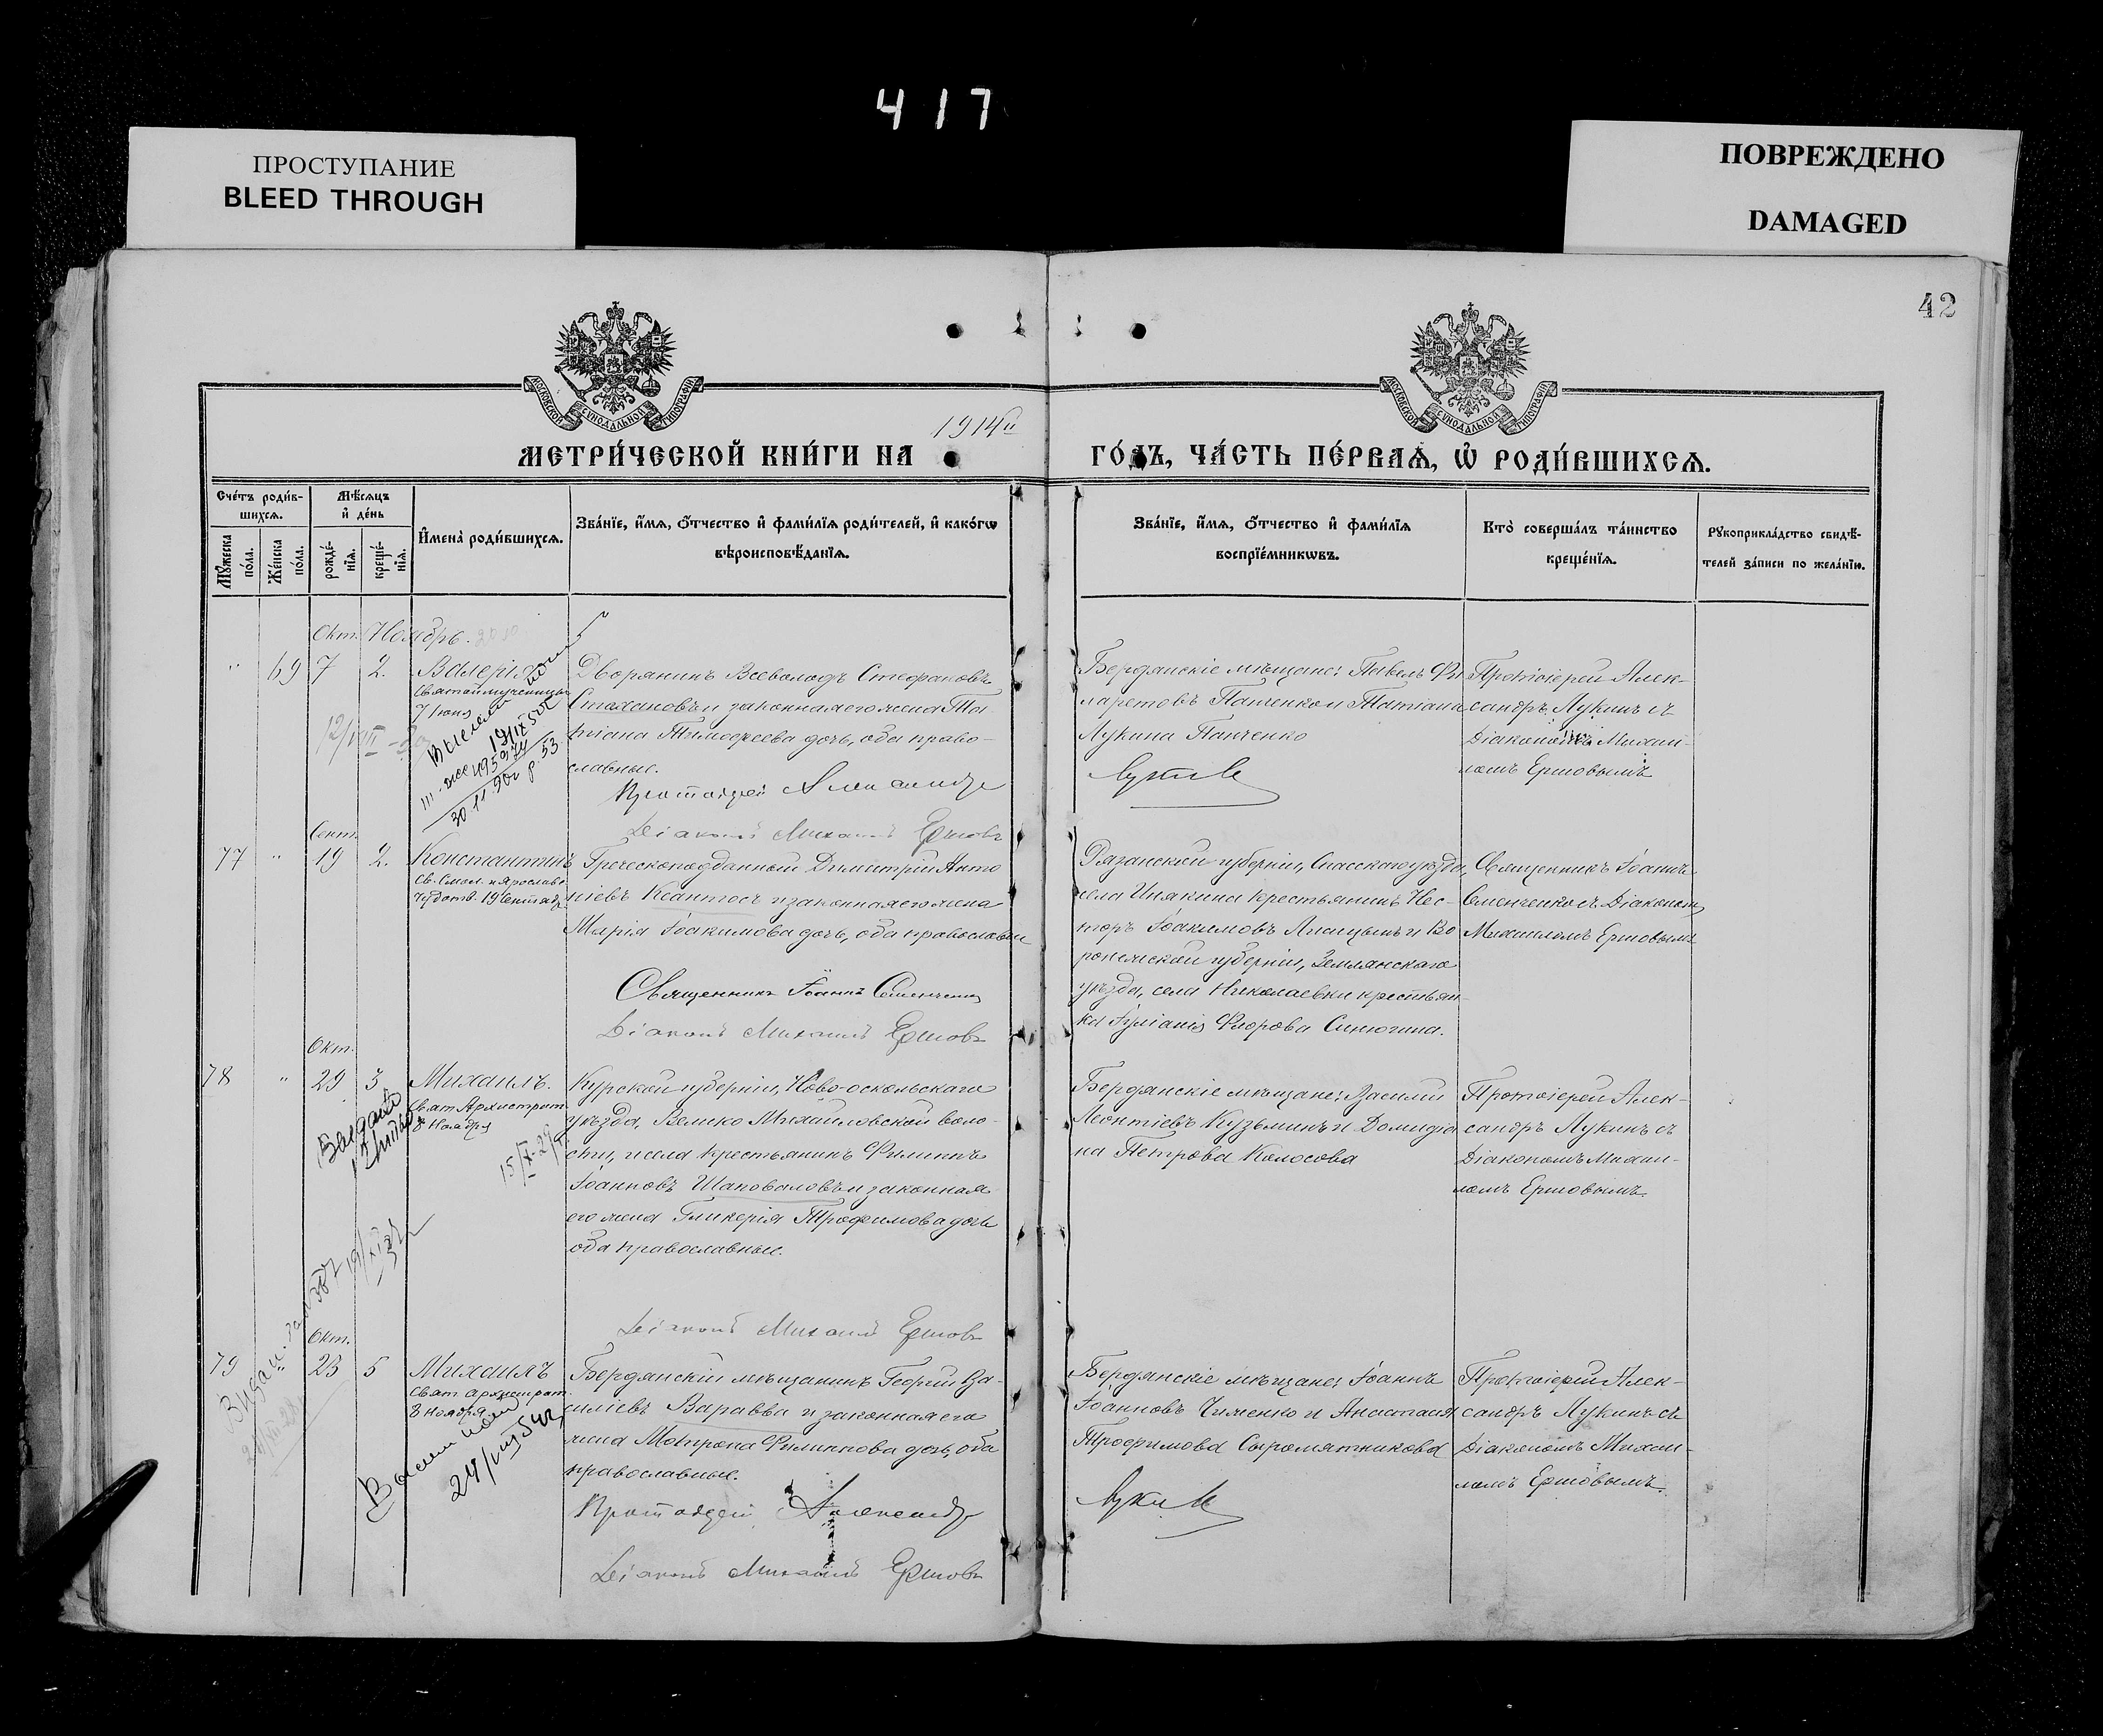 417
ПРОСТУПАНИЕ
BLEED THROUGH
ПОВРЕЖДЕНО
DAMAGED
42
МОСКОВСКОЙ СУНОДАЛЬНОЙ ТИПОГРАФІИ
МОСКОВСКОЙ СУНОДАЛЬНОЙ ТИПОГРАФІИ
1914
МЕТРИ́ЧЕСКОЙ КНИ́ГИ НА ГО́ДЪ, ЧА́СТЬ ПЕ́РВАѦ, Ѡ РОДИ́ВШИХСѦ.
Сче́тъ роди́в-
шихсѧ.
Мꙋ́жеска по́ла.
Же́нска по́ла.
Мѣ́сѧцъ
и де́нь
рожде́-
нїѧ.
креще́-
нїѧ.
Имена̀ роди́вшихсѧ.
Зва́нїе, и́мѧ, ѻ́тчество и фами́лїѧ роди́телей, и како́гѡ
вѣроисповѣ́данїѧ.
Зва́нїе, и́мѧ, ѻ́тчество и фами́лїѧ
воспрїе́мникѡвъ.
Кто̀ соверша́лъ та́инство
креще́нїѧ.
Рꙋкоприкла́дство свидѣ́-
телей за́писи по жела́нїю.
Окт. Ноябрь.
" 69 7 2. Валерія
Святой мученицы
7 Іюня
Дворянинъ Всеволодъ Стефановъ
Стахановъ и законная его жена Та-
тіана Тимофеева дочь, оба право-
славные.
Протоіерей Александръ
Діаконъ Михаилъ Ершовъ
Бердянскіе мѣщане: Павелъ Фи
ларетовъ Панченко и Татіана
Лукина Панченко
Лукинъ
Протоіерей Алек-
сандръ Лукинъ съ
Діакономъ Михаи-
ломъ Ершовымъ
Сент.
77 " 19 2. Константинъ
Св. Смол. и Ярослав.
чудотв. 19 Сентяб.
Греческоподданный Димитрій Анто
ніевъ Ксантосъ и законная его жена
Марія Іоакимова дочь, оба православны
Священникъ Іоаннъ Семенченко
Діаконъ Михаилъ Ершовъ
Рязанской губерніи, Спасскаго уѣзда,
села Инякина крестьянинъ Нес-
торъ Іоакимовъ Лисицынъ и Во
ронежской губерніи, Землянскаго
уѣзда, села Николаевки крестьян-
ка Іуліанія Флорова Синюгина.
Священникъ Іоаннъ
Семенченко съ Діакономъ
Михаиломъ Ершовымъ
Окт.
78 " 29 3 Михаилъ.
Свят Архистрат.
8 Ноября
Курской губерніи, Ново-оскольскаго
уѣзда, Велико Михайловской воло-
сти, и села крестьянинъ Филиппъ
Іоанновъ Шаповаловъ и законная
его жена Гликерія Трофимова дочь
оба православные.
Діаконъ Михаилъ Ершовъ
Бердянскіе мѣщане: Василій
Леонтіевъ Кузьминъ и Домникія
на Петрова Колосова
Протоіерей Алек-
сандръ Лукинъ съ
Діакономъ Михаи-
ломъ Ершовымъ.
Окт.
79 " 23 5 Михаилъ
Свят архистрат.
8 ноября
Бердянскій мѣщанинъ Георгій Ва-
силіевъ Варавва и законная его
жена Мотрона Филиппова дочь, оба
православные.
Протоіерей Александръ
Діаконъ Михаилъ Ершовъ
Бердянскіе мѣщане: Іоаннъ
Іоанновъ Чименко и Анастасія
Трофимова Сыромятникова
Лукинъ
Протоіерей Алек-
сандръ Лукинъ съ
Діакономъ Михаи-
ломъ Ершовымъ.